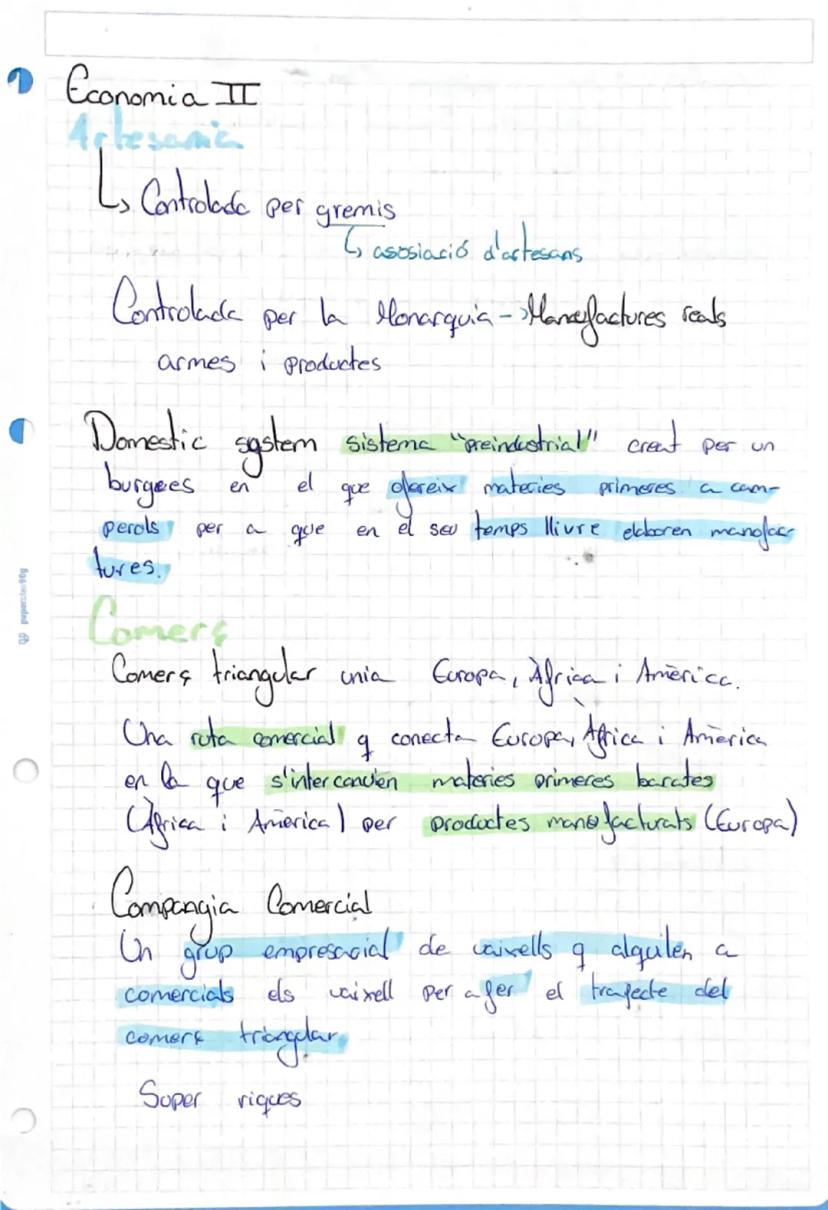 Economia II
Artesania
↳ Controlada per gremis
↳ asosiació d'artesans
Controlada per la Monarquia -> Manufactures reals
armes i productes
Domestic system sistema "preindustrial" creat per un
burgees en el que ofereix materies primeres a cam-
perols per a que en el seu temps llivre elaboren manofac
tures.
Comerç
Comerç triangular unia Europa, Àfrica i Amèrica.
Una ruta comercial q conecta Europa, Àfrica i Amèrica
en la que s'intercanvien materies primeres barates
(Àfrica i Amèrica) per productes manofacturats (Europa)
Compangia Comercial
Un grup empresacial de vaixells q alquilen a
comercials els vaixell per a fer el trajecte del
comerç triangular.
Super riques